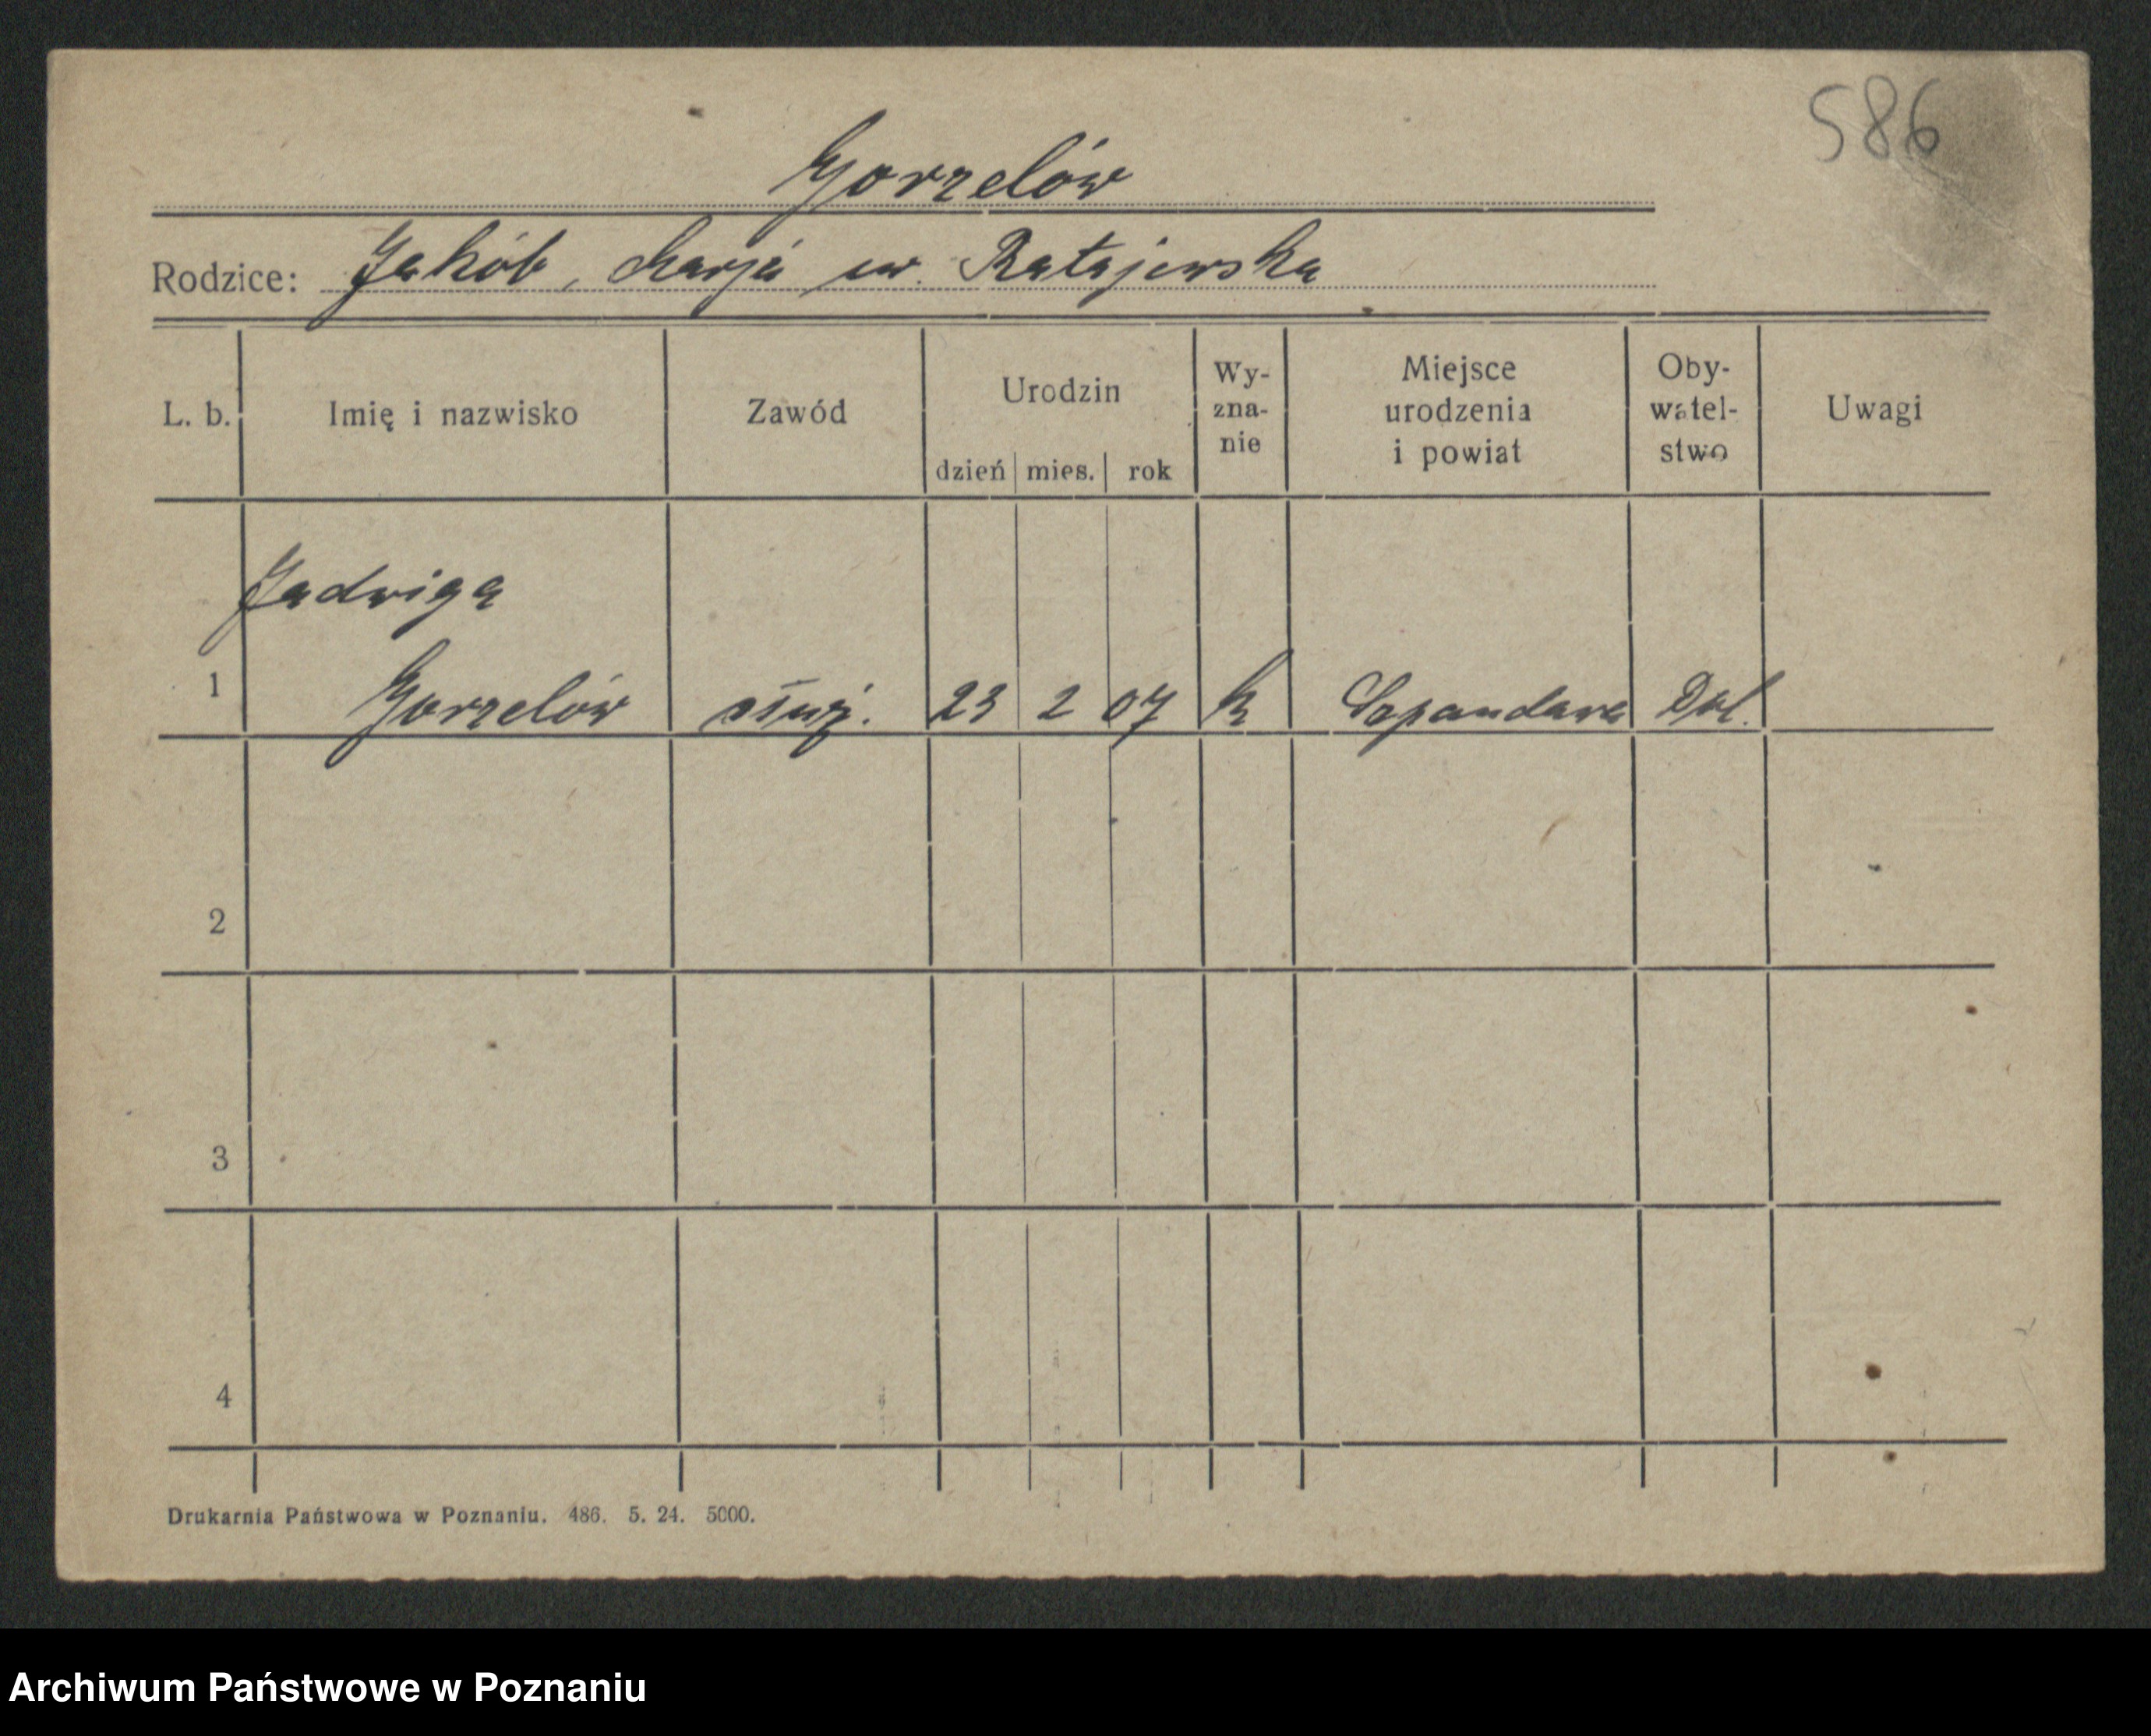 586
Gorzelów
Rodzice: Jakób, Marja ur. Ratajewska
L. b. Imię i nazwisko Zawód Urodzin dzień mies. rok Wy-zna-nie Miejsce urodzenia i powiat Oby-watel-stwo Uwagi
Jadwiga
1 Gorzelów służ. 23 2 07 k Pol.
2
3
4
Drukarnia Państwowa w Poznaniu. 486. 5. 24. 5000.
Archiwum Państwowe w Poznaniu